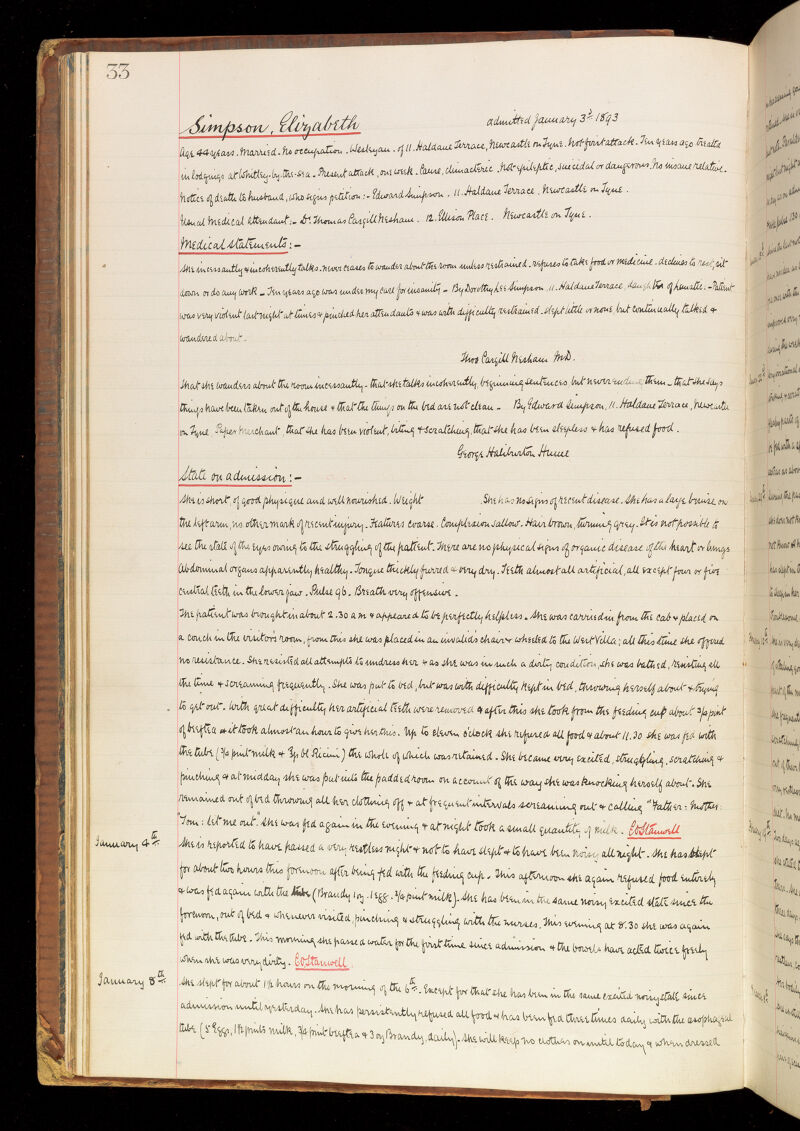 33
Simpson, Elizabeth admitted January 3rd 1893
Age 44 years. Married. No occupation. Wesleyan. of 11. Haldane Terrace, Newcastle on Tyne. Not first attack. Ten years ago treated
in lodgings at Whitley-by-the-sea. Present attack, one week. Cause, climacteric. Not epileptic, suicidal or dangerous. No insane relative.
Notice of death to husband, who signs petition:- Edward Simpson. 11. Haldane Terrace, Newcastle on Tyne.
Usual medical attendant:- Dr. Thomas Cargill Nesham. 12. Ellison Place. Newcastle on Tyne.
Medical Statements:-
She incessantly & incoherently talks. never ceases to wander about the room unless restrained. refuses to take food or medicine. declines to rest, sit
down or do any work - Ten years ago was under my care for insanity - By Dorothy Lee Simpson, 11. Haldane Terrace, daughter of lunatic:- Patient
was very violent last night at times & pinched her attendants & was with difficulty restrained. slept little or none, but continually talked &
wandered about.
Thos Cargill Nesham M.D.
That she wanders about the room incessantly - that she talks incoherently, beginning sentences but never ending them - that she says
things have been taken out of the house & that the things on the bed are not clean - By Edward Simpson, 11. Haldane Terrace, Newcastle
on Tyne. Paper Merchant, that she has been violent, biting & scratching, that she has been sleepless & has refused food.
George Haliburton Hume
State on admission:-
She is short, of good physique and well nourished. Weight She has no signs of recent disease. She has a large bruise on
the left arm, no other mark of recent injury. Features coarse. Complexion sallow. Hair brown, turning grey. It is not possible to
see the state of the eyes owing to the struggling of the patient. There are no physical signs of organic disease of the heart or lungs
Abdominal organs apparently healthy. Tongue thickly furred & very dry. Teeth almost all artificial, all except four or five
central teeth in the lower jaw. Pulse 96. Breath very offensive.
The patient was brought in about 2.30 a m & appeared to be perfectly helpless. She was carried in from the cab & placed on
a couch in the visitor's room, from this she was placed in an invalids chair & wheeled to the West Villa; all this time she offered
no resistance. She resisted all attempts to undress her & as she was in such a dirty condition, she was bathed, resisting all
the time & screaming frequently. She was put to bed, but was with difficulty kept in bed, throwing herself about & trying
to get out. With great difficulty her artificial teeth were removed & after this she took from the feeding cup about 3/4 pint
of beeftea & it took almost an hour to give her this. Up to eleven o'clock she refused all food & about 11.30 she was fed with
the tube (3/4 pint milk & ol Ricini) the whole of which was retained. She became very excited, struggling, scratching &
pinching & at midday she was put into the padded room on account of the way she was knocking herself about. She
remained out of bed throwing all her clothing off & at frequent intervals screaming out & calling "Father: Mother:
Tom: let me out". She was fed again in the evening & at night took a small quantity of milk. CO Stanwell
January 4th She is reported to have passed a very restless night & not to have slept & to have been noisy all night. She has slept
for about two hours this forenoon after being fed with the feeding cup. This afternoon she again refused food entirely
& was fed again with the tube (Brandy 1 oz. 1 egg. 3/4 pint milk). She has been in the same noisy excited state since the
forenoon, out of bed & whenever visited, pinching & struggling with the nurses. This evening at 8.30 she was again
fed with the tube. This morning she passed water for the first time since admission & the bowels have acted twice freely
when she was very dirty. CO Stanwell
January 8th She slept for about 1 1/2 hours on the morning of the 6th. Except for that she has been in the same excited noisy state since
admission until yesterday. She has persistently refused all food & has been fed three times daily with the oesophageal
tube (5 Eggs, 1 1/2 pints milk, 3/4 pint beeftea & 3 oz Brandy, daily). She will keep no clothes on until today & when dressed